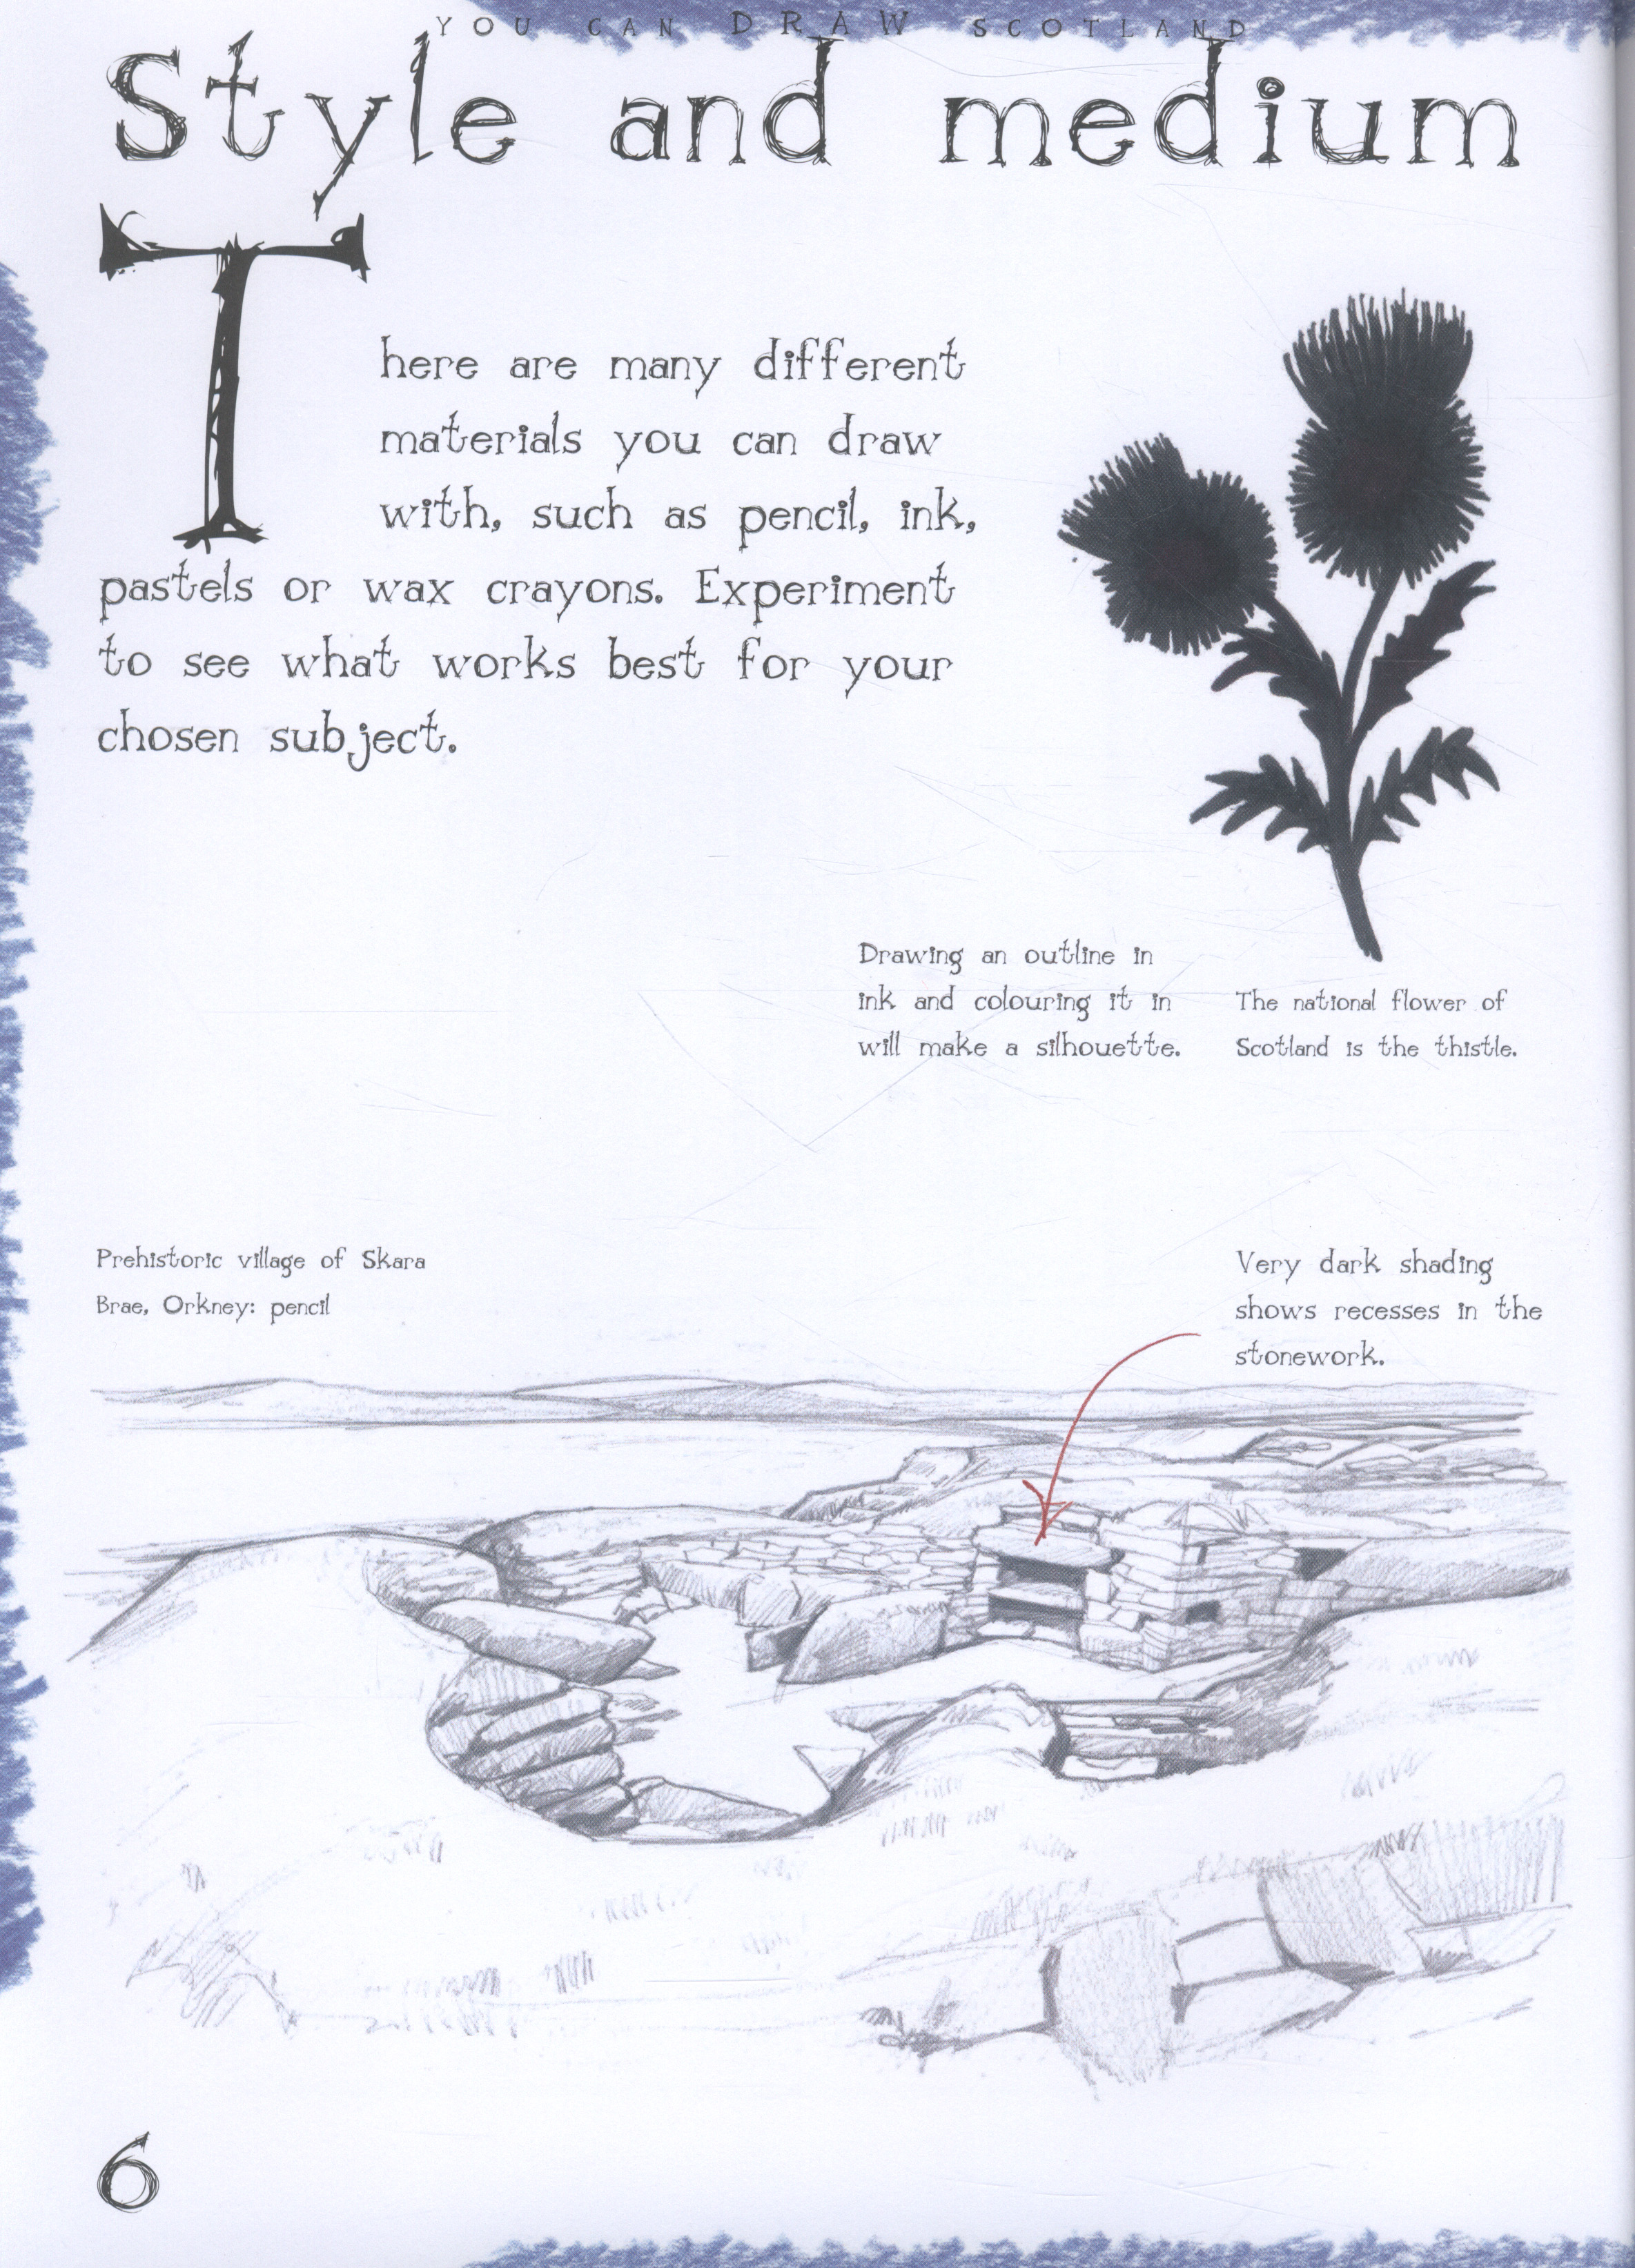 YOU CAN DRAW SCOTLAND
Style and medium
There are many different
materials you can draw
with, such as pencil, ink,
pastels or wax crayons. Experiment
to see what works best for your
chosen subject.
Drawing an outline in
ink and colouring it in
will make a silhouette.
The national flower of
Scotland is the thistle.
Prehistoric village of Skara
Brae, Orkney: pencil
Very dark shading
shows recesses in the
stonework.
6